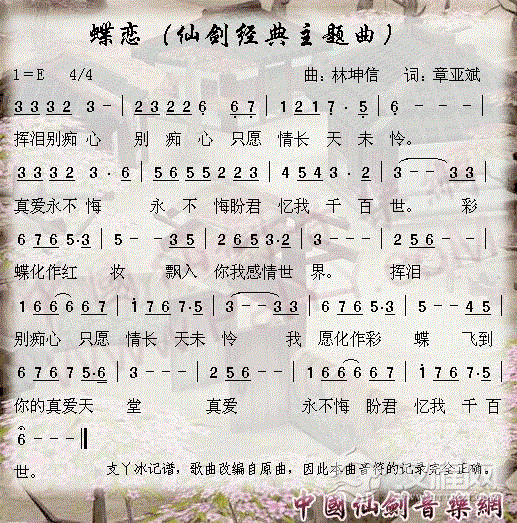 蝶恋（仙剑经典主题曲）
1=E 4/4 曲：林坤信 词：章亚斌
3 3 3 2 3 - | 2 3 2 2 6 6 7 | 1 2 1 7 · 5 | 6 - - - |
挥泪别痴心 别痴心只愿情长天未怜。
3 3 3 2 3 · 6 | 5 6 5 5 2 2 3 | 4 5 4 3 · 2 | 3 - - 3 3 |
真爱永不悔 永不悔盼君忆我千百世。彩
6 7 6 5 · 3 | 5 - - 3 5 | 2 6 5 · 3 | 3 - - | 2 5 6 - - |
蝶化作红妆 飘入你我感情世界。挥泪
1 6 6 6 6 7 | 1 7 6 7 · 5 | 3 - - 3 | 6 7 6 5 · 3 | 5 - - 4 5 |
别痴心只愿情长天未怜 我愿化作彩蝶飞到
6 7 6 7 5 · 6 | 3 - - - | 2 5 6 - - | 1 6 6 6 6 7 | 1 7 6 7 · 5 |
你的真爱天堂 真爱永不悔盼君忆我千百
6 - - - ‖
世。 支丫冰记谱，歌曲改编自原曲，因此本曲音符的记录完全正确。
中國仙劍音樂網